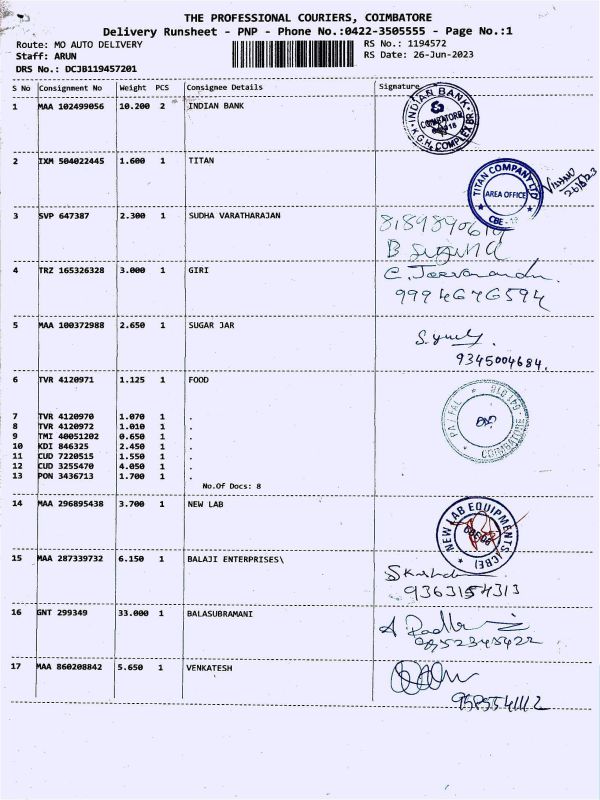 THE PROFESSIONAL COURIERS, COIMBATORE
Delivery Runsheet - PNP - Phone No.:0422-3505555 - Page No.:1
Route: MO AUTO DELIVERY RS No.: 1194572
Staff: ARUN RS Date: 26-Jun-2023
DRS No.: DCJB119457201
S No Consignment No Weight PCS Consignee Details Signature
1 MAA 102499056 10.200 2 INDIAN BANK
INDIAN BANK COIMBATORE K.G.H. COMPLEX BR
2 IXM 504022445 1.600 1 TITAN
TITAN COMPANY LTD AREA OFFICE CBE - 18
3 SVP 647387 2.300 1 SUDHA VARATHARJAN
8189890619
4 TRZ 165326328 3.000 1 GIRI
9994676594
5 MAA 100372988 2.650 1 SUGAR JAR
9345004684.
6 TVR 4120971 1.125 1 FOOD
COIMBATORE 641 018
7 TVR 4120970 1.070 1 .
8 TVR 4120972 1.010 1 .
9 TMI 40051202 0.650 1 .
10 KDI 846325 2.450 1 .
11 CUD 7220515 1.550 1 .
12 CUD 3255470 4.050 1 .
13 PON 3436713 1.700 1 .
No.Of Docs: 8
14 MAA 296895438 3.700 1 NEW LAB
NEW LAB EQUIPMENTS (CBE)
15 MAA 287339732 6.150 1 BALAJI ENTERPRISES\
9363154313
16 GNT 299349 33.000 1 BALASUBRAMANI
9852345422
17 MAA 860208842 5.650 1 VENKATESH